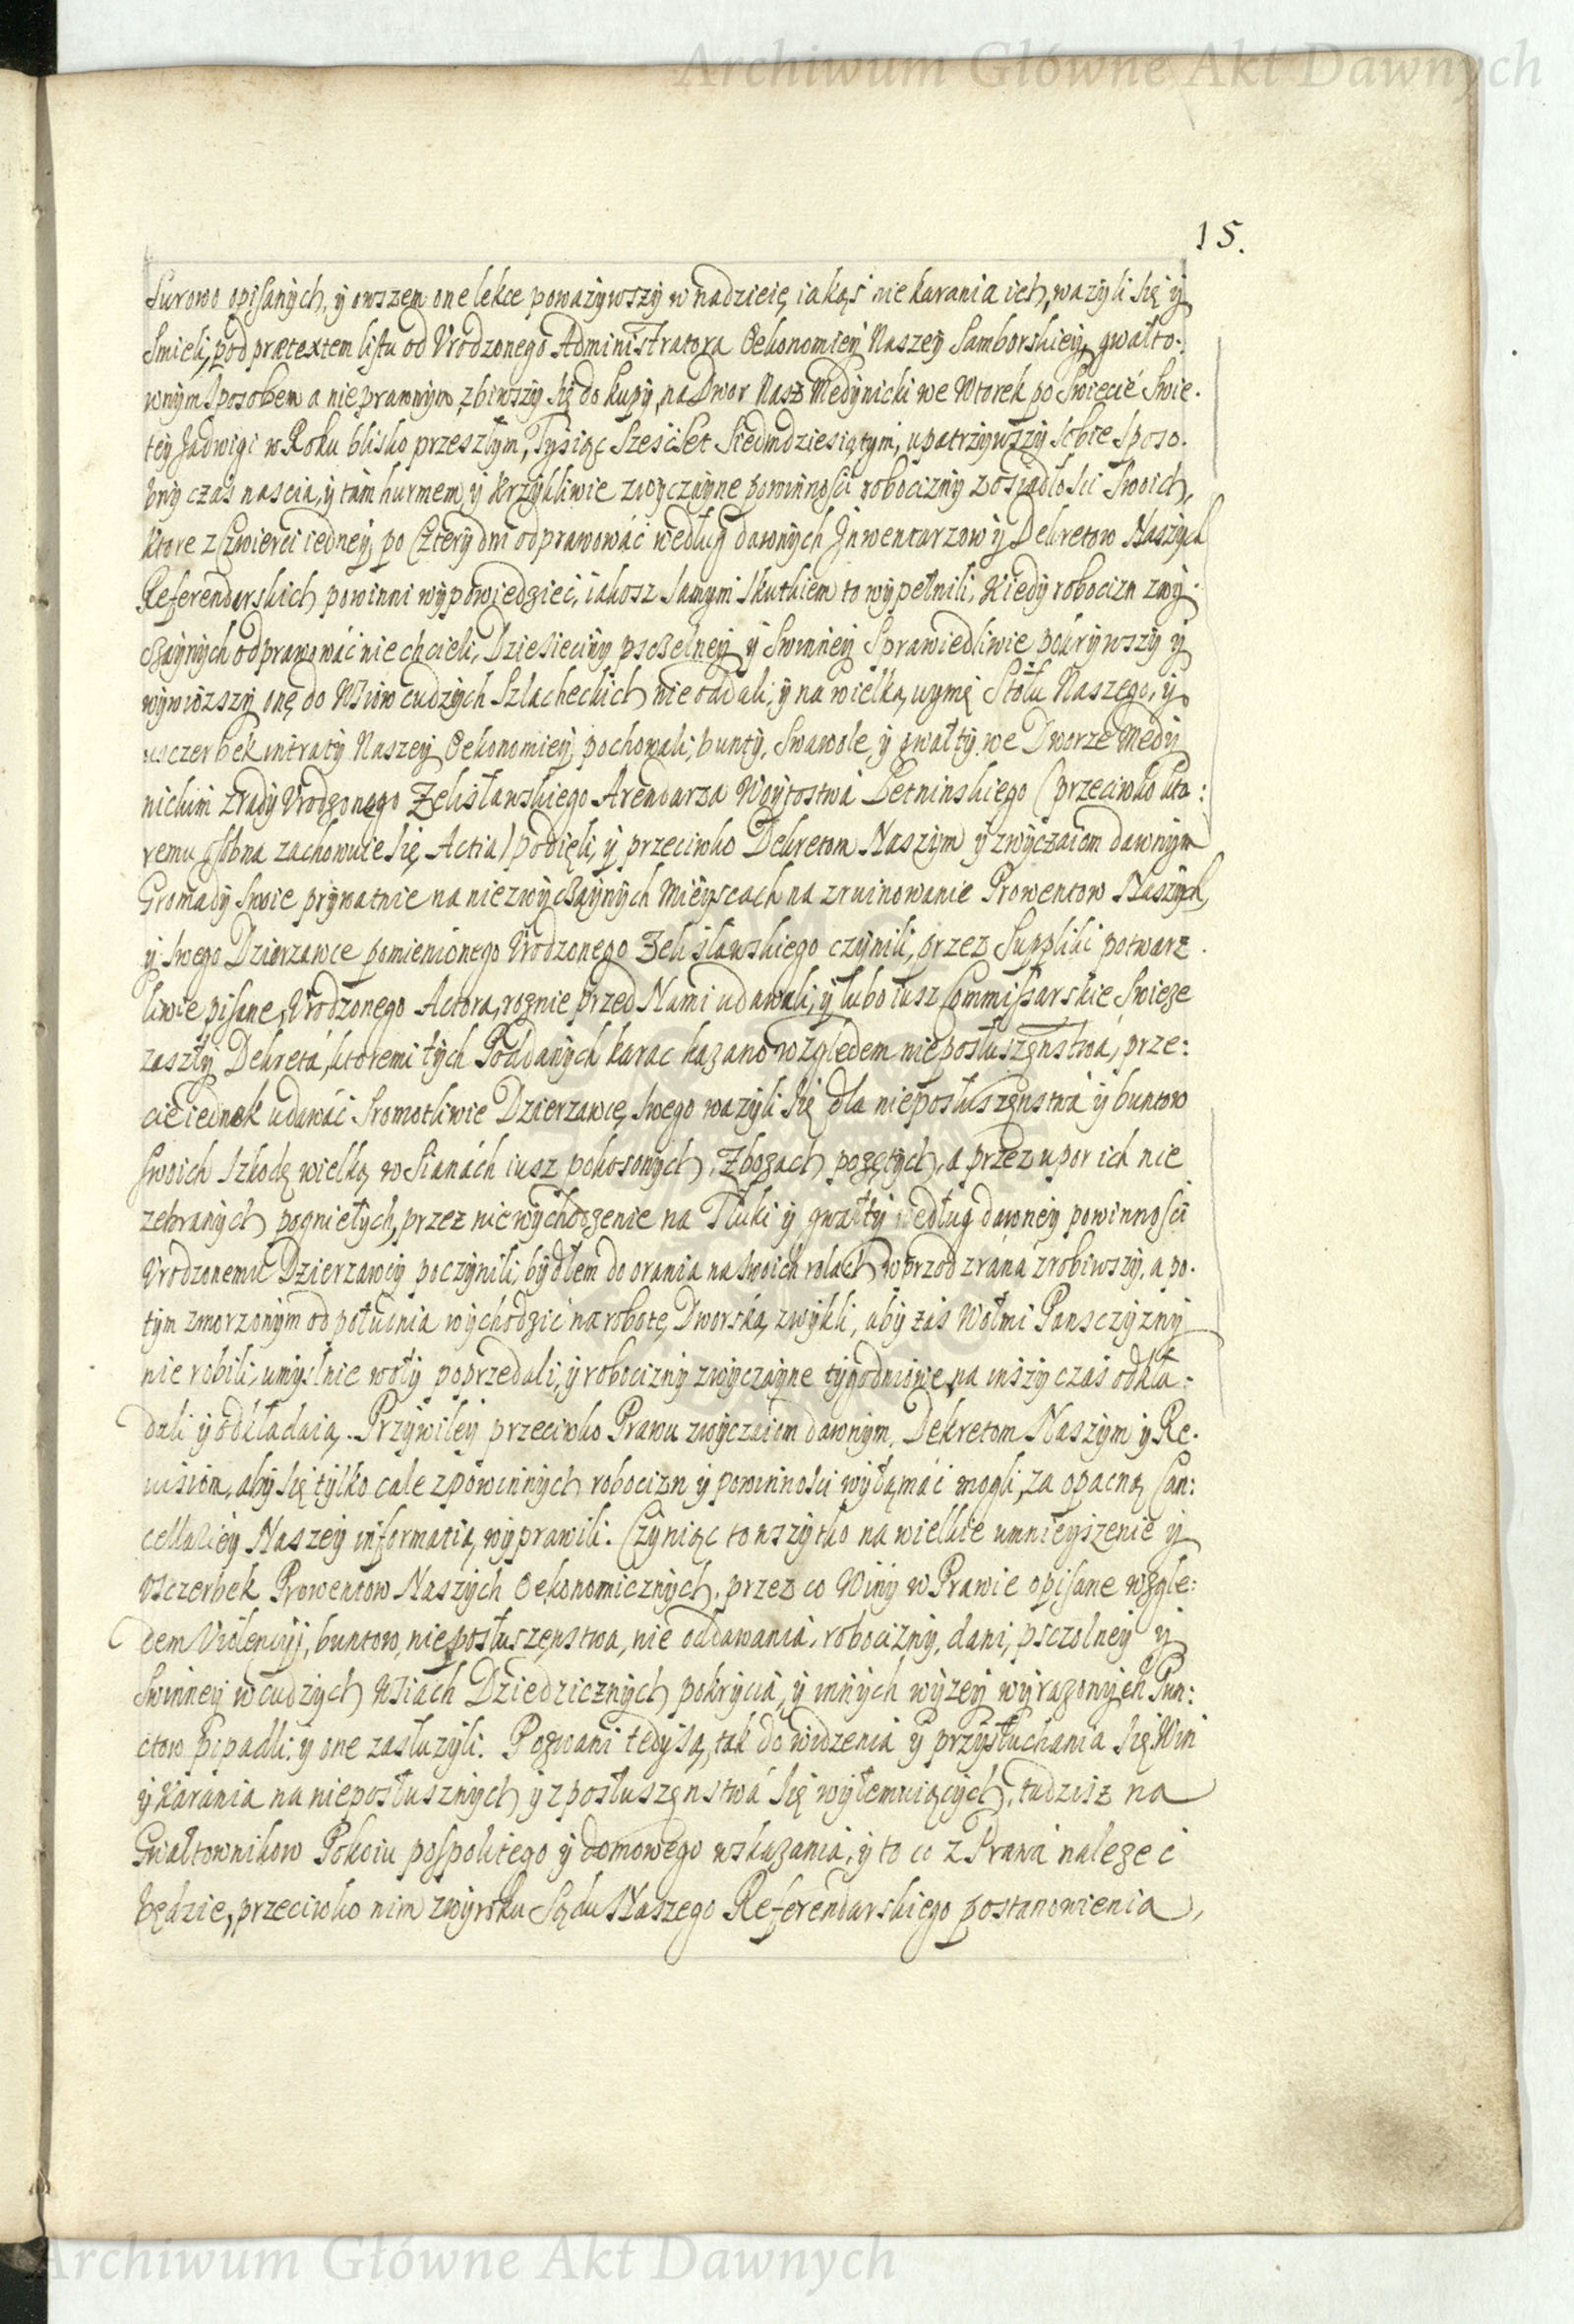 Archiwum Główne Akt Dawnych
15.
Surowo opisanych, y owszem one lekce poważywszy w nadzieię iakąś nie karania ich, ważyli się y
Smieli, pod prætextem listu od Vrodzonego Administratora Oekonomiey Naszey Samborskiey, gwałto:
wnym sposobem a nieprawnym, zbiwszy się do kupy, na Dwor Nasz Medynicki we Wtorek po Swięcie Swię.
tey Jadwigi w Roku blisko przeszłym, Tysiąc Szescset Siedmdziesiątym, upatrzywszy sobie sposo.
bny czas nascia, y tam hurmem, y krzykliwie zwyczayne powinności robocizny z osiadłości swoich,
ktore z Czwierci iedney, po Cztery dni odprawować według dawnych Jnwentarzow y Dekretow Naszych
Referendarskich powinni wypowiedzieć, iakosz samym skutkiem to wypełnili, kiedy robocizn zwy.
czaynych odprawować nie chcieli, Dziesięciny pszczelney y Swinney Sprawiedliwie pokrywszy y
wywiozszy onę do Wsiow cudzych Szlacheckich nie oddali, y na wielką uymę Stołu Naszego, y
uszczerbek intraty Naszey Oekonomiey pochowali, bunty, Swawole y gwałty we Dworze Medy
nickim z rady Vrodzonego Zelisławskiego Arendarza Woytostwa Letninskiego (przeciwko kto:
remu osobna zachowuie się Actia) podięli, y przeciwko Dekretom Naszym y zwyczaiom dawnym
Gromady swoie prywatnie na niezwyczaynych mieyscach na zruinowanie Prowentow Naszych,
y swego Dzierzawce pomienionego Vrodzonego Zelisławskiego czynili, przez Suppliki potwarz.
liwie pisane, Vrodzonego Actora, roznie przed Nami udawali, y lubo iusz Commissarskie swieze
zaszły Dekreta, ktoremi tych Poddanych karac kazano względem nieposłuszęnstwa, prze:
cie iednak udawać sromotliwie Dzierzawcę swego wazyli się dla nieposłuszęnstwa y buntow
swoich szkodę wielką w Sianach iusz pokosonych, Zbozach pozętych, a przez upor ich nie
zebranych pogniełych, przez niewychodzenie na Tłuki y gwałty według dawney powinności
Vrodzonemu Dzierzawcy poczynili, bydłem do orania na swoich rolach wprzod zrana zrobiwszy, a po.
tym zmorzonym od południa wychodzić na robotę Dworską zwykli, aby zaś Wołmi Pansczyzny
nie robili, umyslnie woły poprzedali, y robocizny zwyczayne tygodniowe na inszy czas odkła:
dali y odkładaią. Przywiley przeciwko Prawu zwyczaiom dawnym, Dekretom Naszym y Re.
wisiom, aby się tylko cale z powinnych robocizn y powinności wyłąmać mogli, za opaczną Can:
cellariey Naszey informatią wyprawili. Czyniąc to wszytko na wielkie umnieyszenie y
Vsczerbek Prowentow Naszych Oekonomicznych, przez co Winy w Prawie opisane wzglę:
dem Violencyi, buntow, nieposłuszęnstwa, nie oddawania, robocizny, dani, psczolney y
Swinney w cudzych Wsiach Dziedzicznych pokrycia, y innych wyzey wyrazonych Pun:
ctow popadli, y one zasłuzyli. Pozwani tedy są, tak do widzenia y przysłuchania się Win
y Karania na nieposłusznych y z posłuszęnstwa się wyłemuiących, tudzisz na
Gwałtownikow Pokoiu pospolitego y domowego wskazania, y to co z Prawa nalezeć
będzie, przeciwko nim z wyroku Sądu Naszego Referendarskiego postanowienia,
Archiwum Główne Akt Dawnych